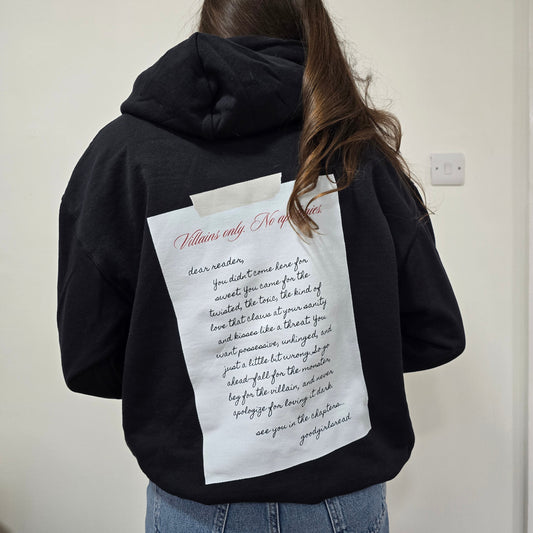 Villains only. No apologies.
dear reader,
You didn't come here for
sweet. You came for the
twisted, the toxic, the kind of
love that claws at your sanity
and kisses like a threat. You
want possessive, unhinged, and
just a little bit wrong. So go
ahead—fall for the monster,
beg for the villain, and never
apologize for loving it dark...
see you in the chapters...
goodgirlsread